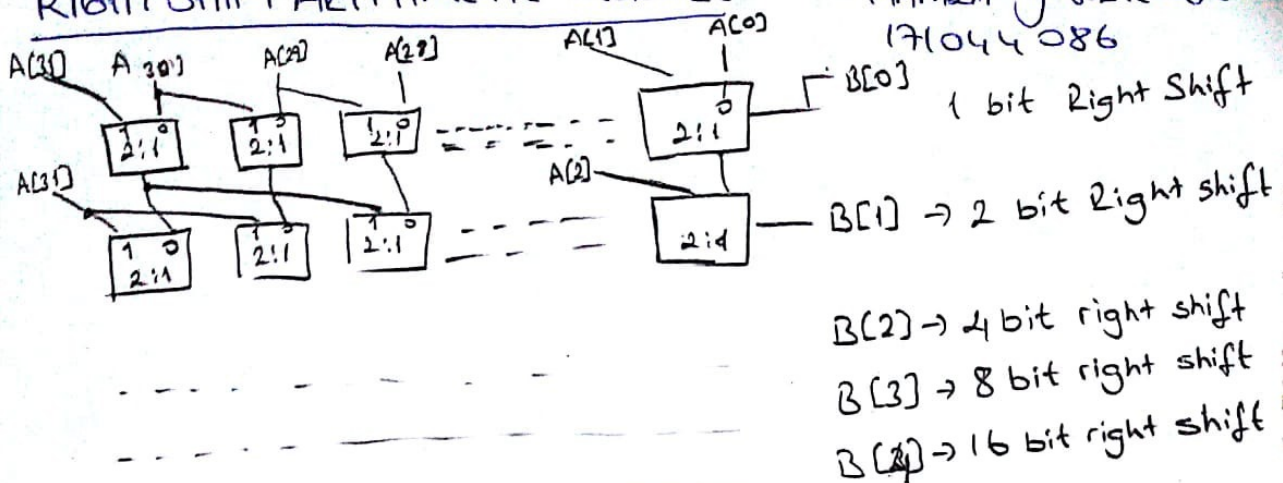 RIGHT SHIFT ARITHMETIC
171044086
A[31] A[30] A[29] A[28] A[1] A[0]
1 0 2:1 1 0 2:1 1 0 2:1 0 2:1 B[0] 1 bit Right Shift
A[31] A[2]
1 0 2:1 1 0 2:1 1 0 2:1 2:1 B[1] → 2 bit Right shift
B[2] → 4 bit right shift
B[3] → 8 bit right shift
B[4] → 16 bit right shift